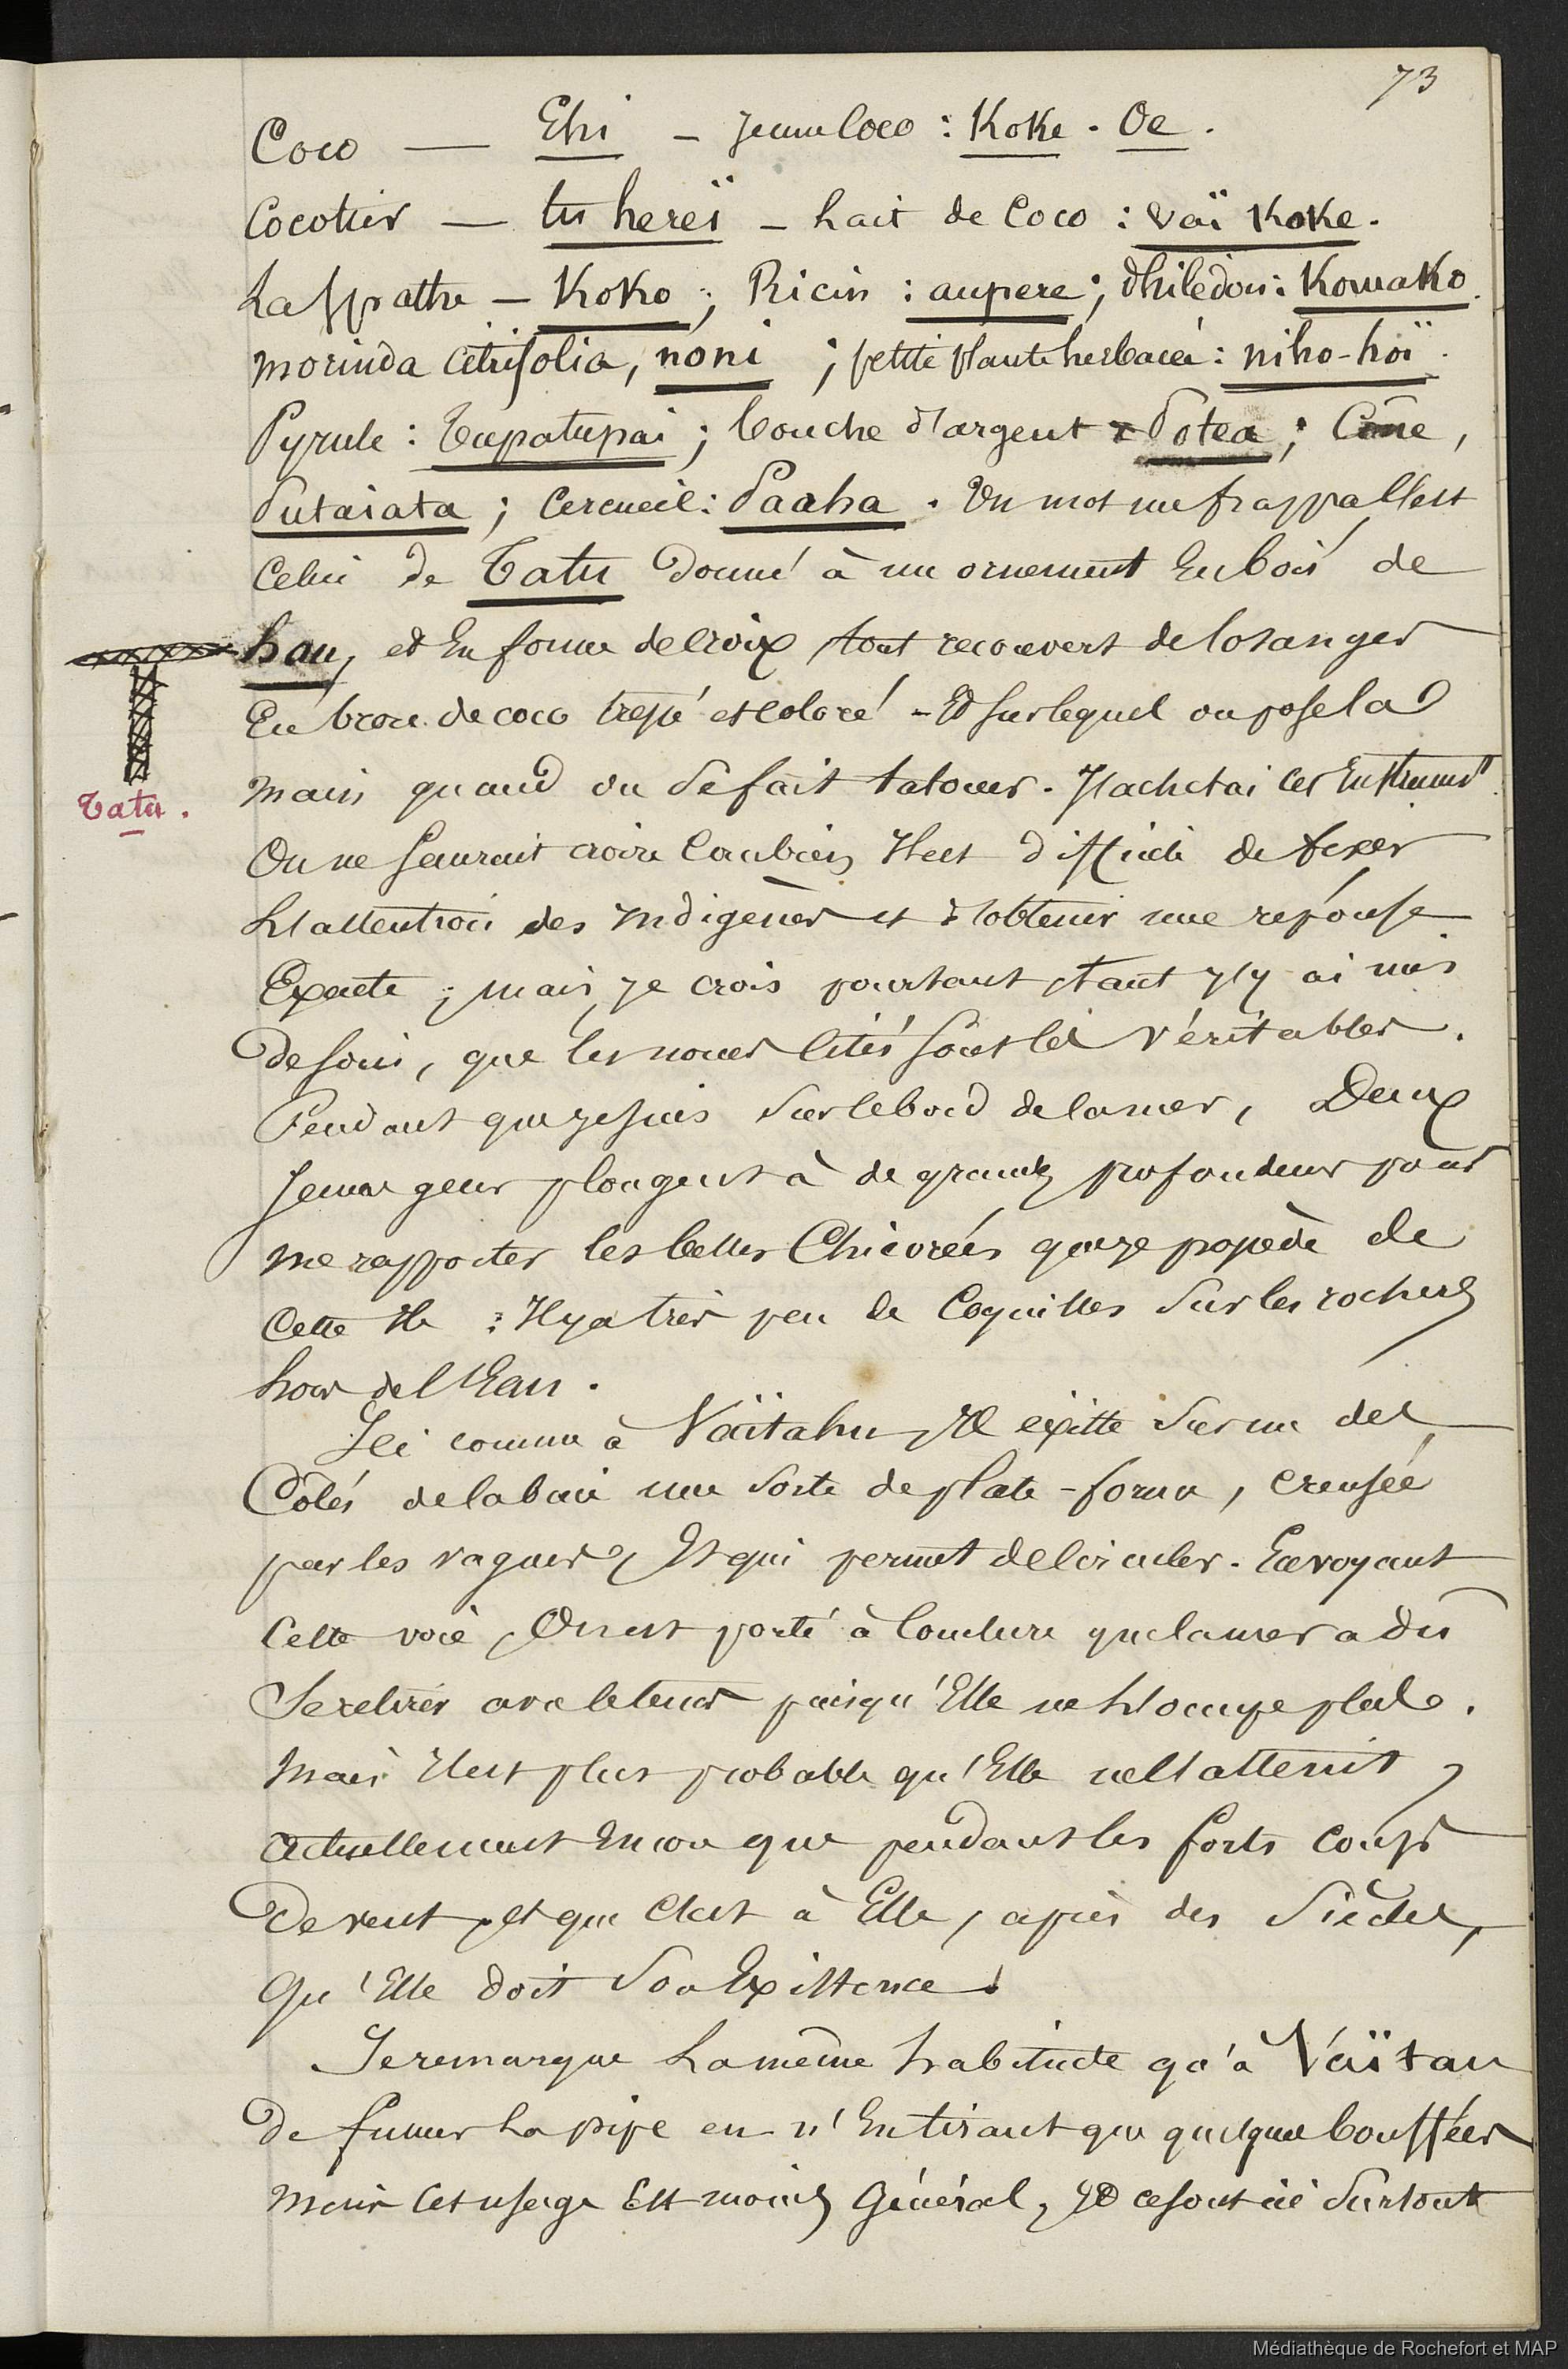 73
Coco — Ehi – jeune Coco : Koke . Oe .
Cocotier — tu hereï – Lait de Coco : vaï Koke .
La Spathe – Koko ; Ricin : aupere ; Philédon : Komako .
Morinda Citrifolia, noni ; petite plante herbacée : niho-hoï .
Pyrule : Tupatupai ; bouche d'argent Potea ; Cône ,
Putaiata ; Cercueil : Paaha . Un mot me frappa C'est
Celui de Tatu donné à un ornement En bois de
hau, et En forme de Croix tout recouvert de losanges
En brou de coco tressé et coloré – Et sur lequel on pose la
main quand on se fait tatouer . J'achetai ces Instrumts.
On ne Saurait croire Combien Il est difficile de fixer
L'attention des Indigènes et d'obtenir une réponse
Exacte ; mais je crois pourtant , tant j'y ai mis
de soin, que les noms Cités Sont les véritables .
Pendant que je suis Sur le bord de la mer, Deux
jeunes gens plongent à de grandes profondeurs pour
me rapporter les belles Chicorées que je possède de
Cette Ile : Il y a très peu de Coquilles Sur les rochers
hors de l'Eau .
Ici comme à Vaïtahu, Il existe Sur un des
Côtés de la baie une Sorte de plate-forme , creusée
par les vagues, Et qui permet de Circuler . En voyant
Cette voie , On est porté à Conclure que la mer a dû
Se retirer avec le tems puisqu'Elle ne L'occupe plus .
Mais Il est plus probable qu'Elle ne l'atteint
actuellement Encore que pendant les forts coups
De vent , et que C'est à Elle , après des Siècles,
Qu'Elle doit Son Existence .
Je remarque La même habitude qu'à Vaïtau
De fumer La pipe en n'En tirant que quelques bouffées
Mais Cet usage Est moins Général, Et ce sont ici Surtout
Tatu .
Médiathèque de Rochefort et MAP